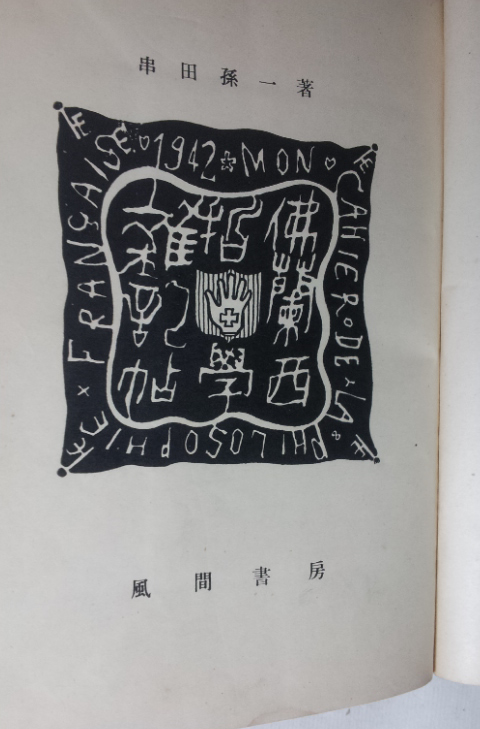 串田孫一著
1942 MON
CAHIER DE LA
PHILOSOPHIE
FRANÇAISE
佛蘭西
哲學
雜記帖
風間書房